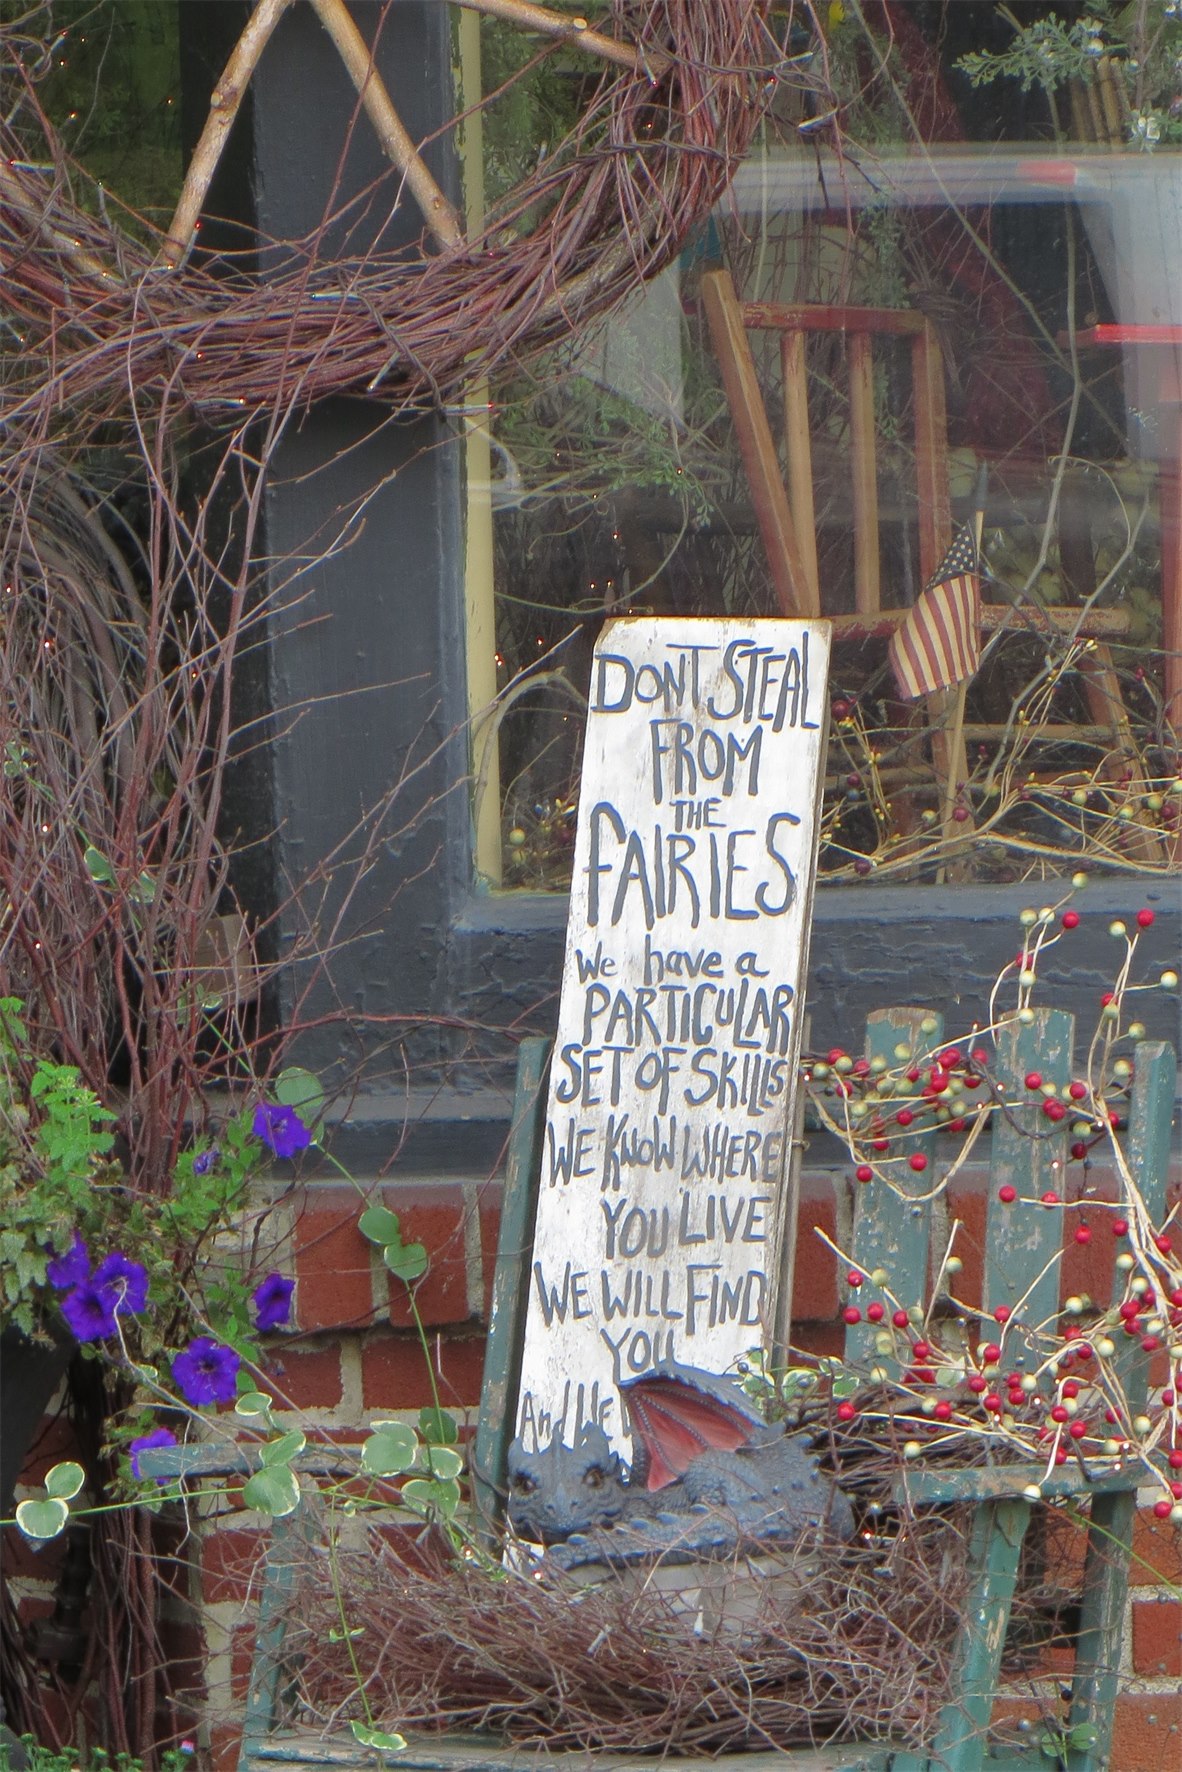 DONT STEAL
FROM
THE
FAIRIES
We have a
PARTICULAR
SET OF SKILLS
WE KNOW WHERE
YOU LIVE
WE WILL FIND
YOU
And We